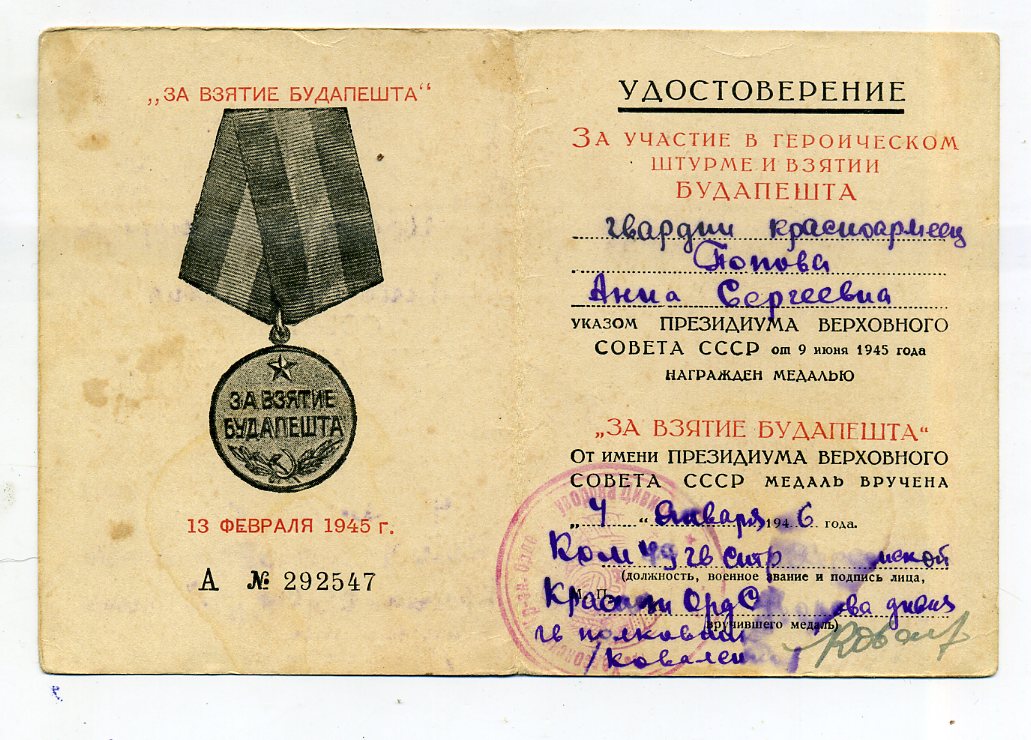 „ЗА ВЗЯТИЕ БУДАПЕШТА“
ЗА ВЗЯТИЕ
БУДАПЕШТА
13 ФЕВРАЛЯ 1945 г.
А № 292547
УДОСТОВЕРЕНИЕ
ЗА УЧАСТИЕ В ГЕРОИЧЕСКОМ
ШТУРМЕ И ВЗЯТИИ
БУДАПЕШТА
гвардии красноармеец
Попова
Анна Сергеевна
УКАЗОМ ПРЕЗИДИУМА ВЕРХОВНОГО
СОВЕТА СССР от 9 июня 1945 года
НАГРАЖДЕН МЕДАЛЬЮ
„ЗА ВЗЯТИЕ БУДАПЕШТА“
От имени ПРЕЗИДИУМА ВЕРХОВНОГО
СОВЕТА СССР МЕДАЛЬ ВРУЧЕНА
„4“ Января 1946 года.
Ком 49 гв стр
(должность, военное звание и подпись лица,
М. П.
Орд
вручившего медаль)
гв